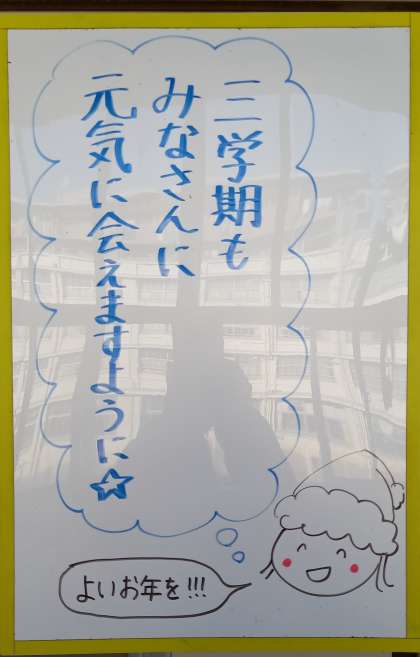 三学期も
みなさんに
元気に会えますように☆
よいお年を!!!